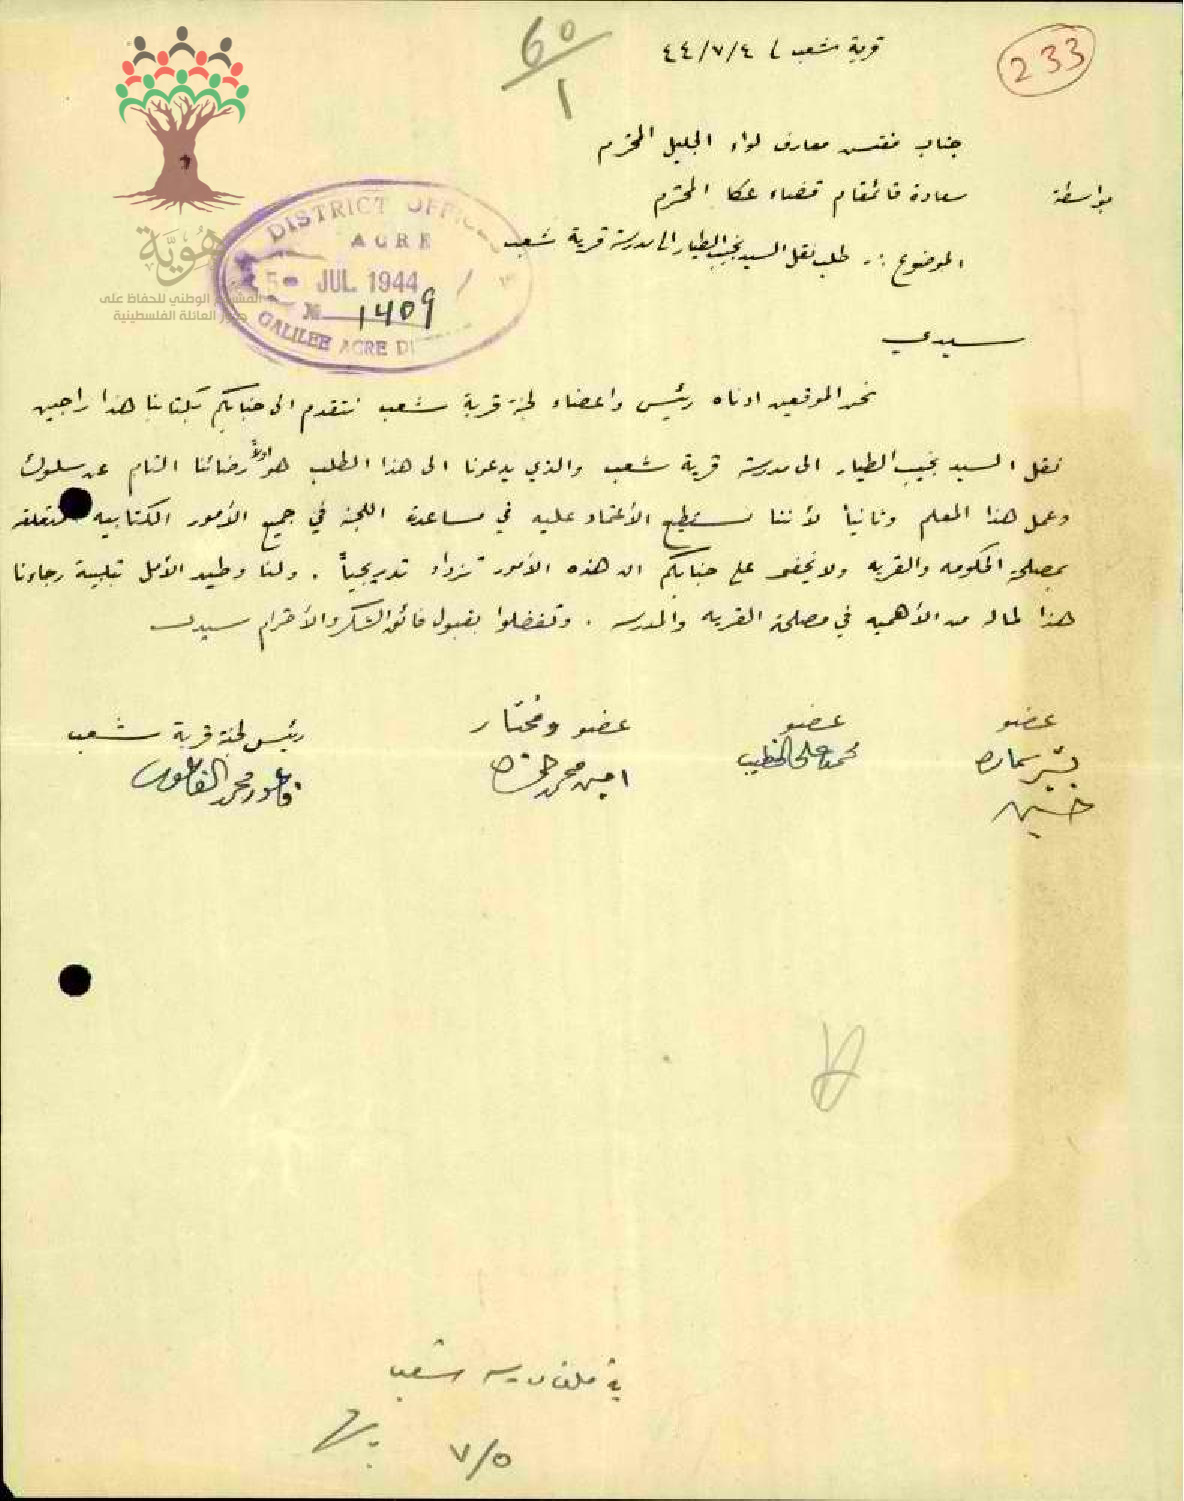 233
60/1
قرية شعب / ٤٤/٧/٤
جناب مفتش معارف لواء الجليل المحترم
بواسطة سعادة قائمقام قضاء عكا المحترم
الموضوع :. طلب نقل السيد نجيب الطيار الى مدرسة قرية شعب
DISTRICT OFFICES
ACRE
5 - JUL. 1944
№ 1409
GALILEE ACRE DI
هُوِيَّة
المشروع الوطني للحفاظ على
جذور العائلة الفلسطينية
سيدي
نحن الموقعين ادناه رئيس واعضاء لجنة قرية شعب نتقدم الى جنابكم بكتابنا هذا راجين
نقل السيد نجيب الطيار الى مدرسة قرية شعب والذي يدعونا الى هذا الطلب هو اولاً رضائنا التام عن سلوك
وعمل هذا المعلم وثانياً لأننا نستطيع الأعتماد عليه في مساعدة اللجنة في جميع الأمور الكتابيه المتعلقه
بمصلحة الحكومه والقريه ولا يخفى على جنابكم ان هذه الأمور تزداد تدريجياً . ولنا وطيد الأمل تلبية رجاءنا
هذا لما له من الأهميه في مصلحة القريه والمدرسه . وتفضلوا بقبول فائق الشكر والأحترام سيدي
عضو عضو عضو ومختار رئيس لجنة قرية شعب
محمد علي الخطيب امين محمد
حسين
شعب
٧/٥